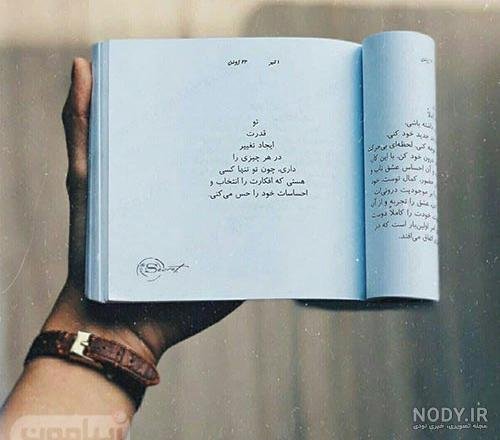 ۱ تیر ۲۲ ژوئن
تو
قدرت
ایجاد تغییر
در هر چیزی را
داری، چون تو تنها کسی
هستی که افکارت را انتخاب و
احساسات خود را حس می‌کنی.
Secret
داشته باشی.
جدید خود کنی.
کنی. لحظه‌ای بی‌حرکت
درون خود کن. با این کار
آن احساس عشق ناب و
حضور، کمال توست. خود
موجودیت درونی‌ات
عشق را تجربه و از آن
خودت را کاملا دوست
اولین‌بار است که در
اتفاق می‌افتد.
NODY.IR
مجله تصویری، خبری نودی